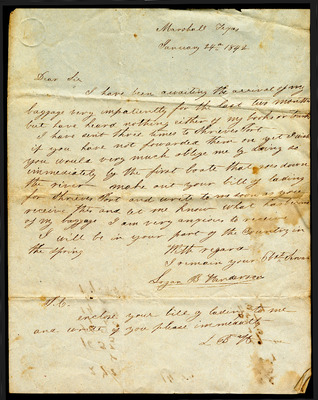 Marshall Texas
January 24th 1842
Dear Sir
I have been awaiting the arrival of my
baggage very impatiently for the last two months
but have heard nothing either of my books or trunk
I have sent three times to Shrieves Port
if you have not forwarded them on yet
you would very much oblige me by doing so
immediately by the first boate that goes down
the river make out your bill of lading
for Shrieves Port and write to me as soon as you
receive this and let me know what has become
of my baggage I am very anxious to receive
I will be in your part of the Country in
the spring
With regard
I remain your obt Servant
Logan B
N.B.
inclose your bill of lading to me
and write if you please immediately
L B